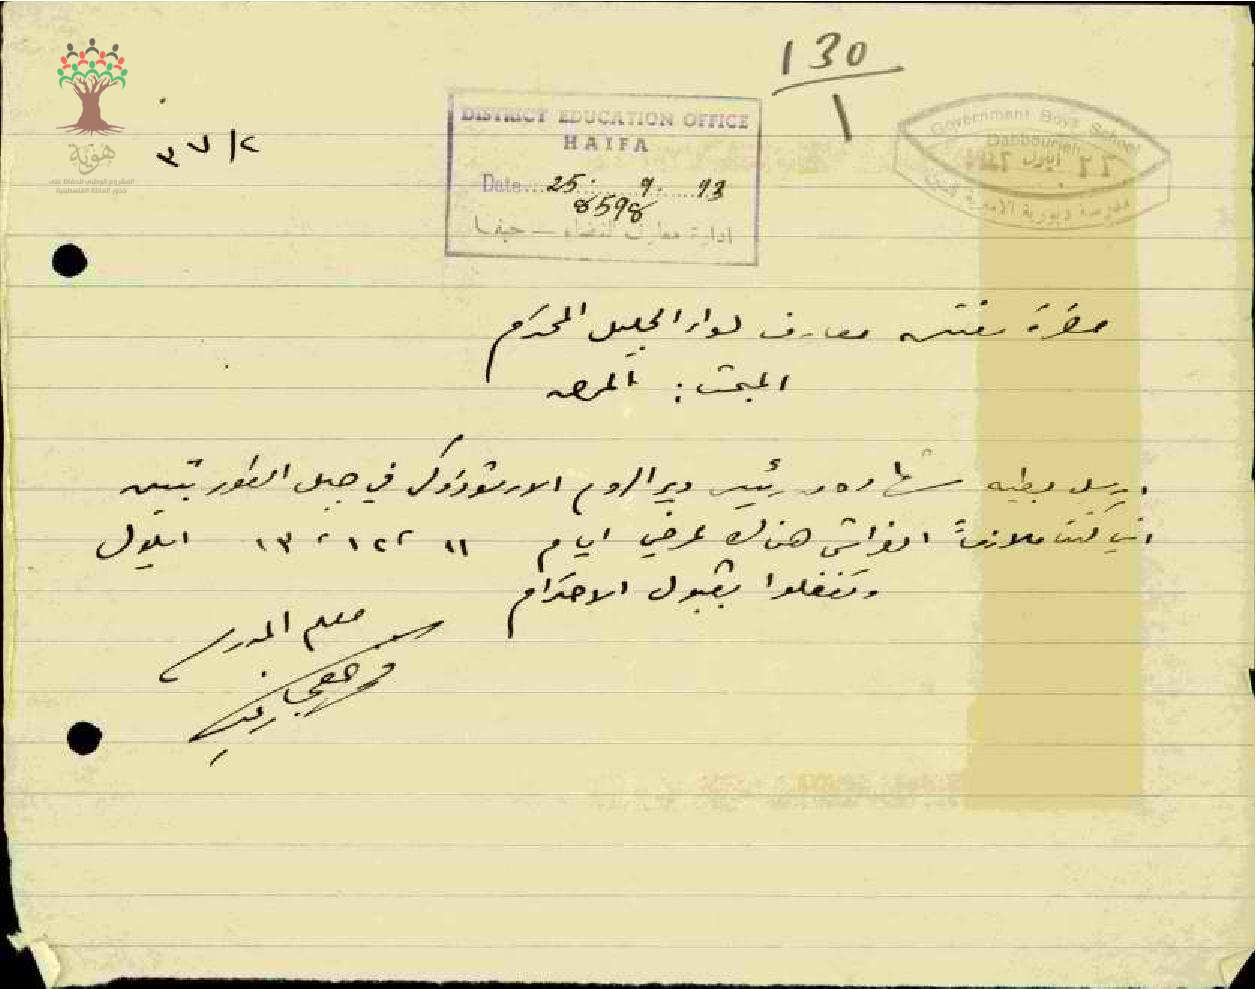 130
1
٣٧/٢
هوية
المشروع الوطني للحفاظ على
جذور العائلة الفلسطينية
DISTRICT EDUCATION OFFICE
HAIFA
Date... 25. 9. 43
8598
ادارة معارف القضاء — حيفا
Government Boys School
Dabbourieh
٢٢ ايلول
مدرسة دبورية الاميرية للبنين
حضرة مفتش معارف لواء الجليل المحترم
المبحث : المرض
ارسل بطيه شهادة من رئيس دير الروم الارثوذوكس في جبل الطور تبين
انني كنت ملازماً الفراش هناك لمرضي ايام ١١ ، ١٢ ، ١٣ ايلول
وتفضلوا بقبول الاحترام
معلم المدرسة